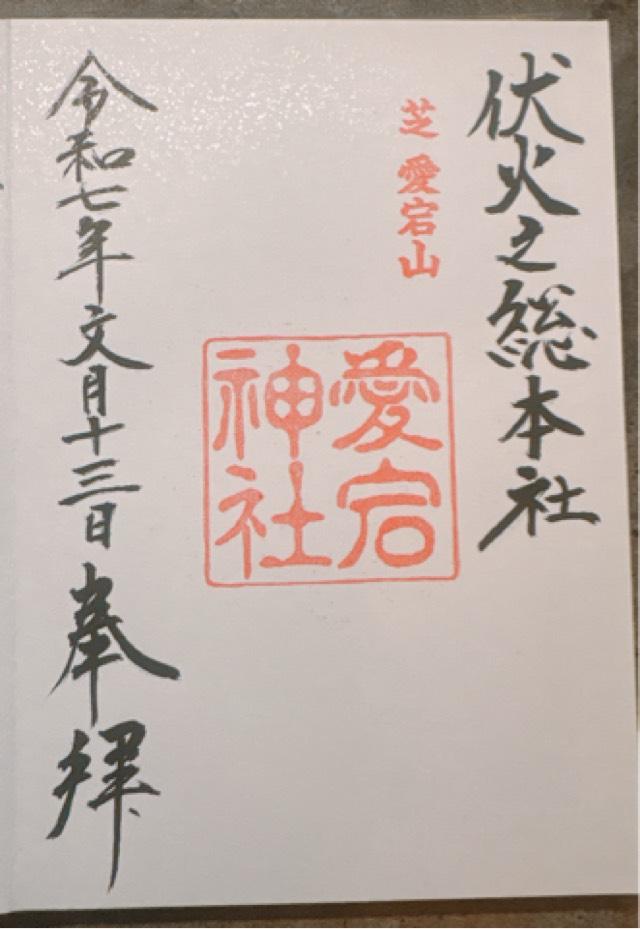 伏火之総本社
芝 愛宕山
愛宕
神社
令和七年文月十三日 奉拝